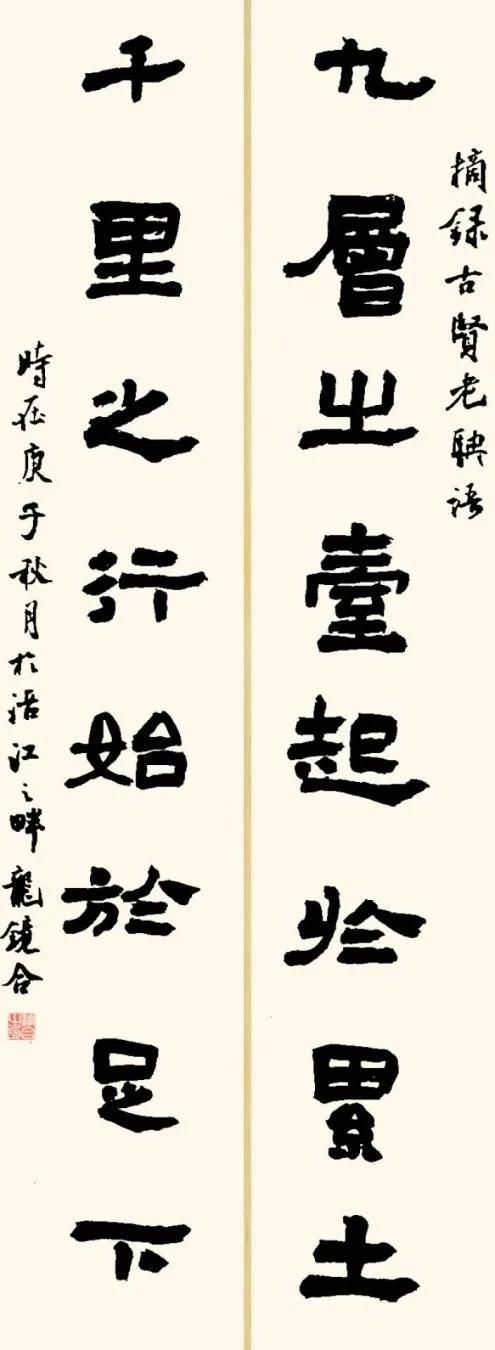 摘録古賢老聃語
九層之臺起於累土
千里之行始於足下
時在庚子秋月於涪江之畔龍鏡合